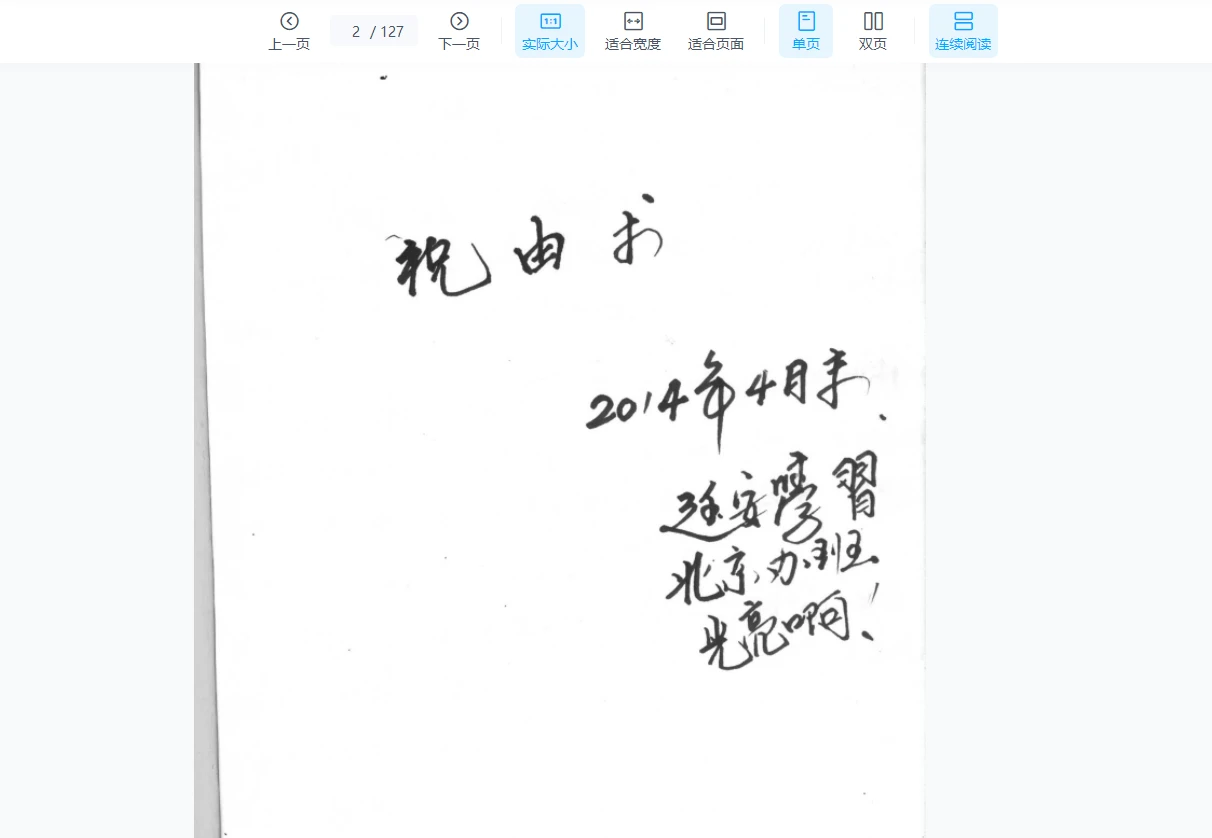 上一页 2 / 127 下一页 实际大小 适合宽度 适合页面 单页 双页 连续阅读
祝由书
2014年4月末.
延安學習
北京办班
光亮啊!